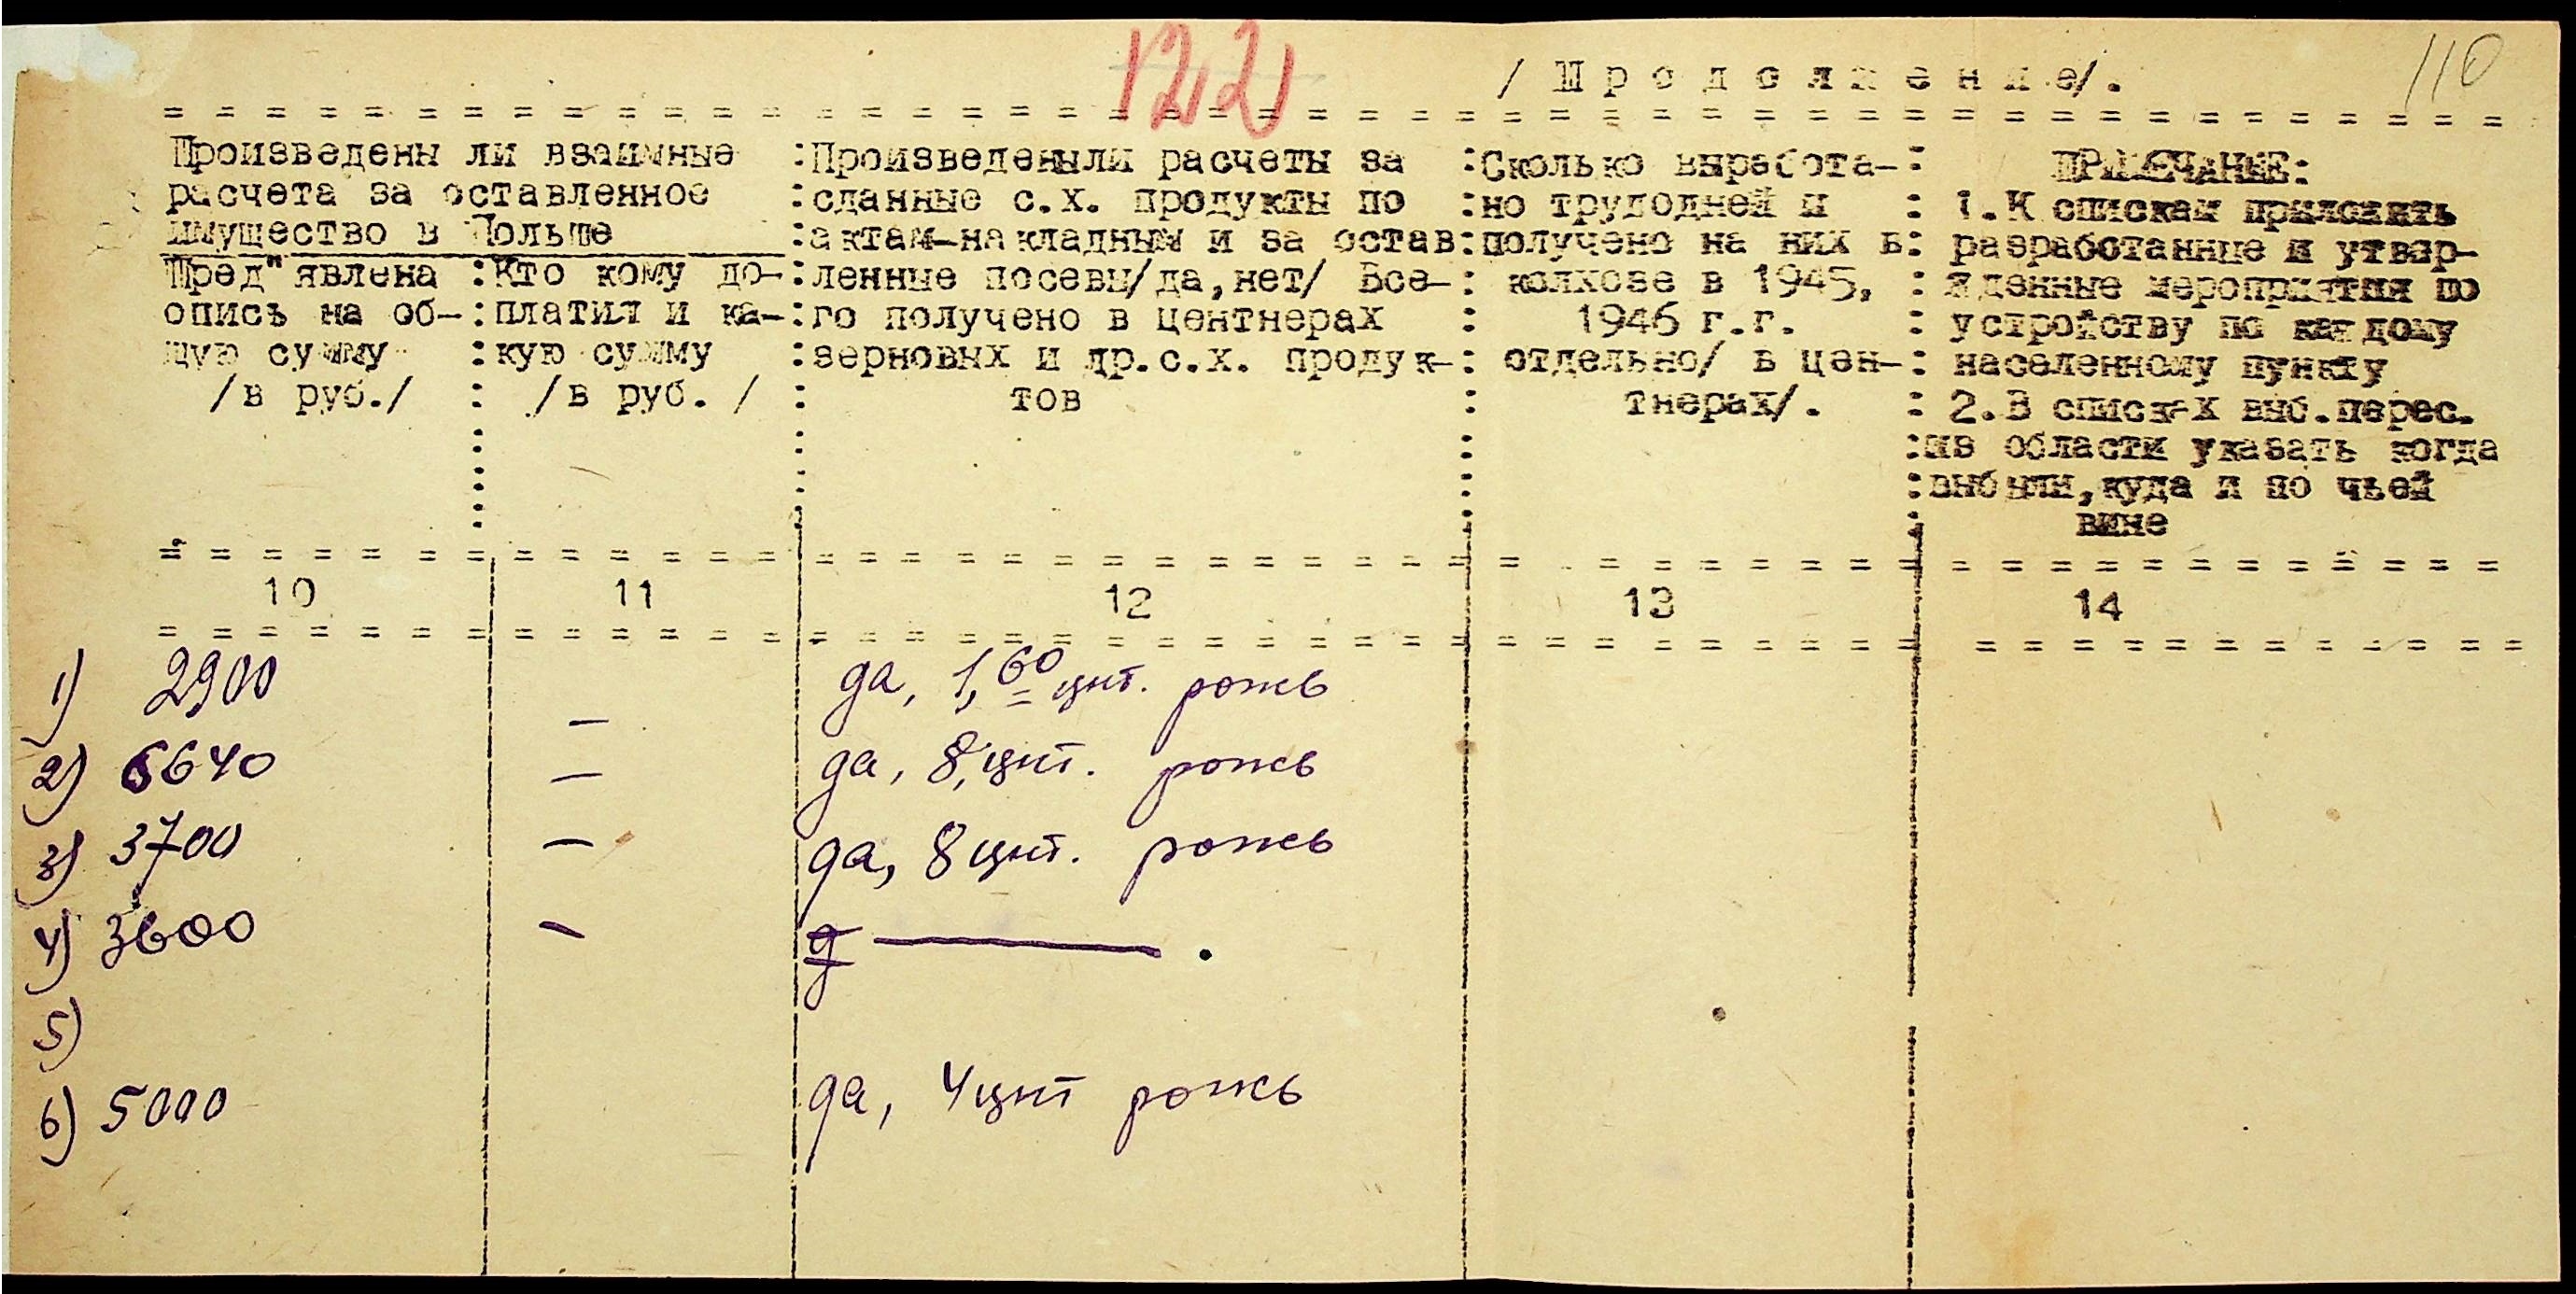 122
110
/ П р о д о л ж е н и е/.
Произведены ли взаимные
расчета за оставленное
имущество в Польше
Пред"явлена
опись на об-
щую сумму
/в руб./
Кто кому до-
платил и ка-
кую сумму
/в руб. /
Произведены ли расчеты за
сданные с.х. продукты по
актам-накладным и за остав
ленные посевы/да,нет/ Все-
го получено в центнерах
зерновых и др.с.х. продук-
тов
Сколько выработа-
но трудодней и
получено на них в
колхозе в 1945,
1946 г.г.
отдельно/ в цен-
тнерах/.
ПРИМЕЧАНИЕ:
1.К спискам приложить
разработанные и утвер-
жденные мероприятия по
устройству по каждому
населенному пункту
2.В списках выб.перес.
из области указать когда
выбыли,куда и по чьей
вине
10 11 12 13 14
1) 2900 – да, 1,60 цнт. рожь
2) 6640 – да, 8, цнт. рожь
3) 3700 – да, 8 цнт. рожь
4) 3600 – д —— .
5)
6) 5000 да, 4 цнт рожь